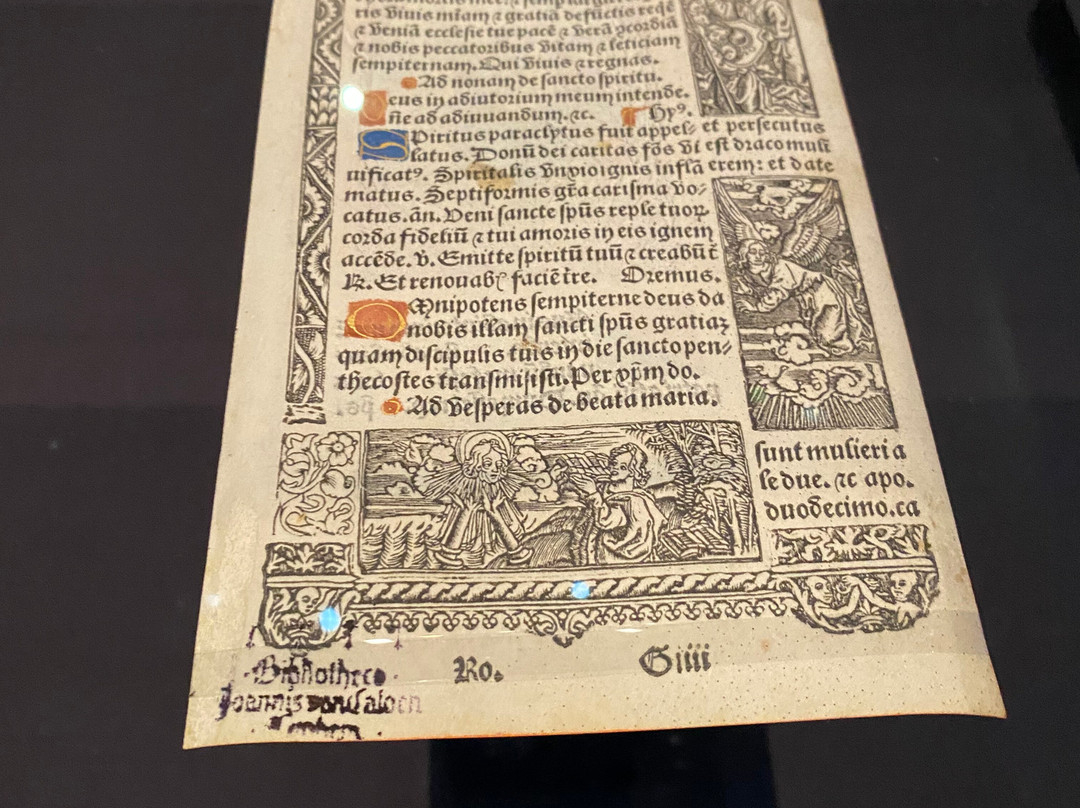 ris viuis mīam ⁊ gratiā defūctis reqē
⁊ veniā ecclesie tue pacē ⁊ verā ꝯcordiā
⁊ nobis peccatoribus vitam ⁊ leticiam
sempiternam. Qui viuis ⁊ regnas.
Ad nonam de sancto spiritu.
Deus in adiutorium meum intende.
n̄e ad adiuuandum. ⁊c. Hyꝰ.
Spiritus paraclytus fuit appel⸗
latus. Donū dei caritas fōs vi
uificatꝰ. Spiritalis vnpioignis inflā
matus. Septiformis gr̄a carisma vo⸗
catus. ān. Veni sancte spūs reple tuoꝝ
corda fideliū ⁊ tui amoris in eis ignem
accēde. v̄. Emitte spiritū tuū ⁊ creabūt̄
℞. Et renouabꝭ faciē tr̄e. Oremus.
Omnipotens sempiterne deus da
nobis illam sancti spūs gratiaꝫ
quam discipulis tuis in die sancto pen⸗
thecostes transmisisti. Per xp̄m do.
Ad vesperas de beata maria.
et persecutus
est draco muli
erem: et date
sunt mulieri a
le due. ⁊c apo.
duodecimo. ca
Ro. Giiii
Bibliotheca
Joannis van Caloen